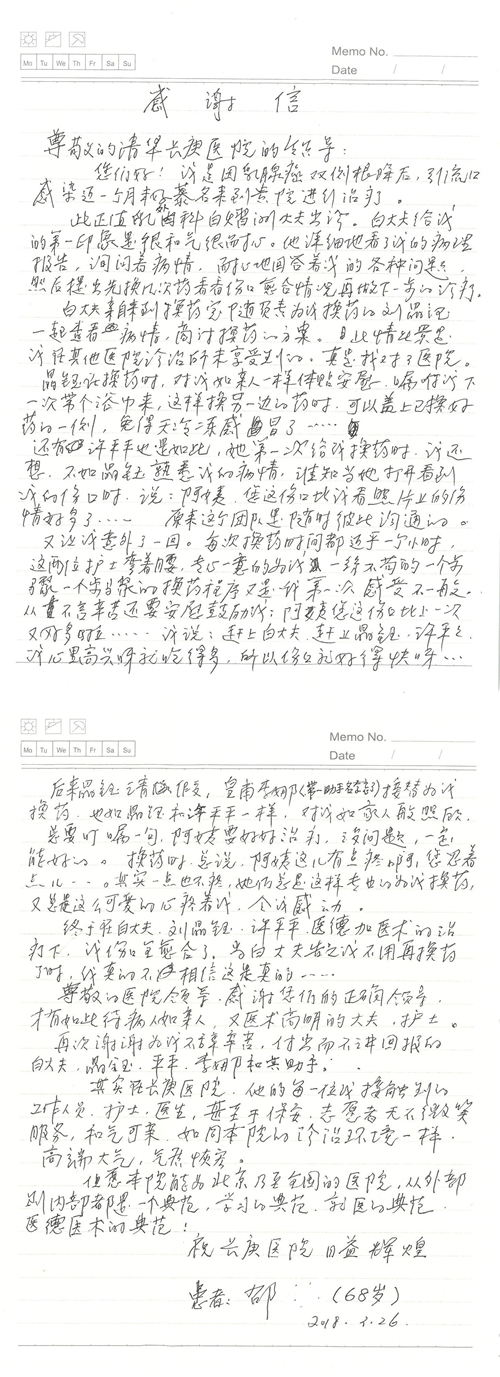 Memo No.
Mo Tu We Th Fr Sa Su
Date / /
感谢信
尊敬的清华长庚医院的领导：
您们好！我是因乳腺癌双侧根除后，引流口
感染近一个月来慕名来到贵院进行治疗。
此正值乳科白大夫出诊。白大夫给我
的第一印象是很和气很耐心。他详细地看了我的病理
报告，询问着病情，耐心地回答着我的各种问题，
然后提出先换几次药看看伤口愈合情况再做下一步的诊疗。
白大夫亲自来到换药室随负责为我换药的刘晶钰
一起查看病情，商讨换药的方案。此情此景是
我在其他医院诊治所未享受到的。真是找对了医院。
晶钰在换药时，对我如亲人一样体贴安慰，嘱咐我下
一次带个浴巾来，这样换另一边的药时，可以盖上已换好
药的一侧，免得天冷凉感冒了……
还有许平平也是如此，她第一次给我换药时，我还
想，不如晶钰熟悉我的病情，谁知当她打开看到
我的伤口时，说：阿姨，您这伤口比我看照片上的伤
情好多了…… 原来这个团队是随时彼此沟通的。
又让我意外了一回。每次换药时间都近乎一个小时，
这两位护士弯着腰，专心一意的为我一丝不苟的一个步
骤一个步骤的换药程序又是我第一次感受
不言辛苦还要安慰鼓励我：阿姨您这伤口比上一次
又好多啦……我说：赶上白大夫，赶上晶钰、许平平，
我心里高兴呀就吃得多，所以伤口就好得快呀…
Memo No.
Mo Tu We Th Fr Sa Su
Date / /
后来晶钰请假，皇甫接替为我
换药，也如晶钰和许平平一样，对我如家人般照顾，
总要叮嘱一句，阿姨要好好治疗，没问题，一定
能好的。换药时总说，阿姨这儿有点疼啊，您忍着
点儿…。其实一点也不疼，她们总是这样专业的为我换药，
又总是这么可爱的心疼着我，令我感动。
终于在白大夫、刘晶钰、许平平医德加医术的治
疗下，我伤口全愈合了。当白大夫告之我不用再换药
了时，我真的不相信这是真的……
尊敬的医院领导，感谢您们的正确领导，
才有如此待病人如亲人，又医术高明的大夫、护士。
再次谢谢为我不辞辛苦，付出而不讲回报的
白大夫、晶钰、平平、李娜和其助手。
其实在长庚医院，他的每一位我接触到的
工作人员、护士、医生，甚至于保安、志愿者无不微笑
服务，和气可亲，如同本院的诊治环境一样，
高端大气，
但愿本院能为北京乃至全国的医院，从外部
到内部都是一个典范，学习的典范，就医的典范，
医德医术的典范！
祝长庚医院日益辉煌
患者：邵 （68岁）
2018.3.26.